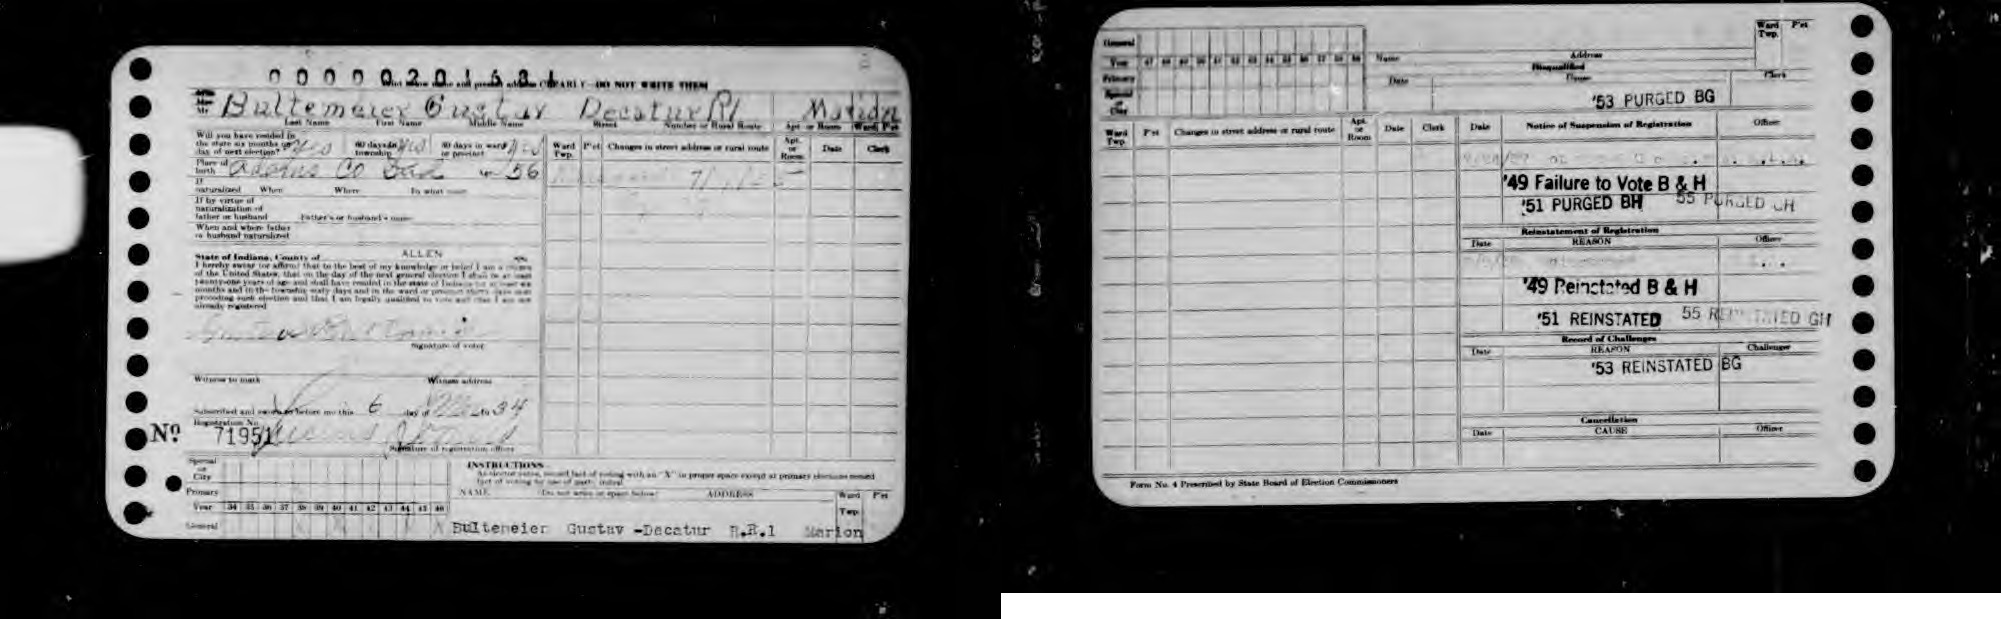 0 0 0 0 0 2 0 1 5 3 1
CLEARLY—DO NOT WRITE THEM
Bultemeier Gustav Decatur R1 Marion
Last Name First Name Middle Name Street Number or Rural Route Apt. or Room Ward P'ct
Will you have resided in
the state six months on Yes 60 days in 30 days in ward
day of next election? township or precinct
Ward Twp. P'ct Changes in street address or rural route Apt. or Room Date Clerk
Place of
birth Adams Co Ind 56
If
naturalized When Where By what court
If by virtue of
naturalization of
father or husband Father's or husband's name
When and where father
or husband naturalized
State of Indiana, County of ALLEN
I hereby swear (or affirm) that to the best of my knowledge or belief I am a citizen
of the United States, that on the day of the next general election I shall be at least
twenty-one years of age and shall have resided in the state of Indiana for at least six
months and in the township sixty days and in the ward or precinct thirty days next
preceding such election and that I am legally qualified to vote and that I am not
already registered
Signature of voter
Witness to mark Witness address
Subscribed and sworn to before me this 6 day of 34
Registration No.
Nº 71951
Signature of registration officer
Special
or
City
Primary
Year 34 35 36 37 38 39 40 41 42 43 44 45 46
General
INSTRUCTIONS
NAME (Do not write in space below) ADDRESS Ward Twp. P'ct
Bultemeier Gustav -Decatur R.R.1 Marion
General
Year 47 48 49 50 51 52 53 54 55 56 57 58 59
Primary
Special
or
City
Name Address Ward Twp. P'ct
Disqualified
Date Cause Clerk
'53 PURGED BG
Ward Twp. P'ct Changes in street address or rural route Apt. or Room Date Clerk
Date Notice of Suspension of Registration Officer
'49 Failure to Vote B & H
'51 PURGED BH 55 PURGED GH
Reinstatement of Registration
Date REASON Officer
'49 Reinstated B & H
'51 REINSTATED 55 REINSTATED GH
Record of Challenges
Date REASON Challenger
'53 REINSTATED BG
Cancellation
Date CAUSE Officer
Form No. 4 Prescribed by State Board of Election Commissioners